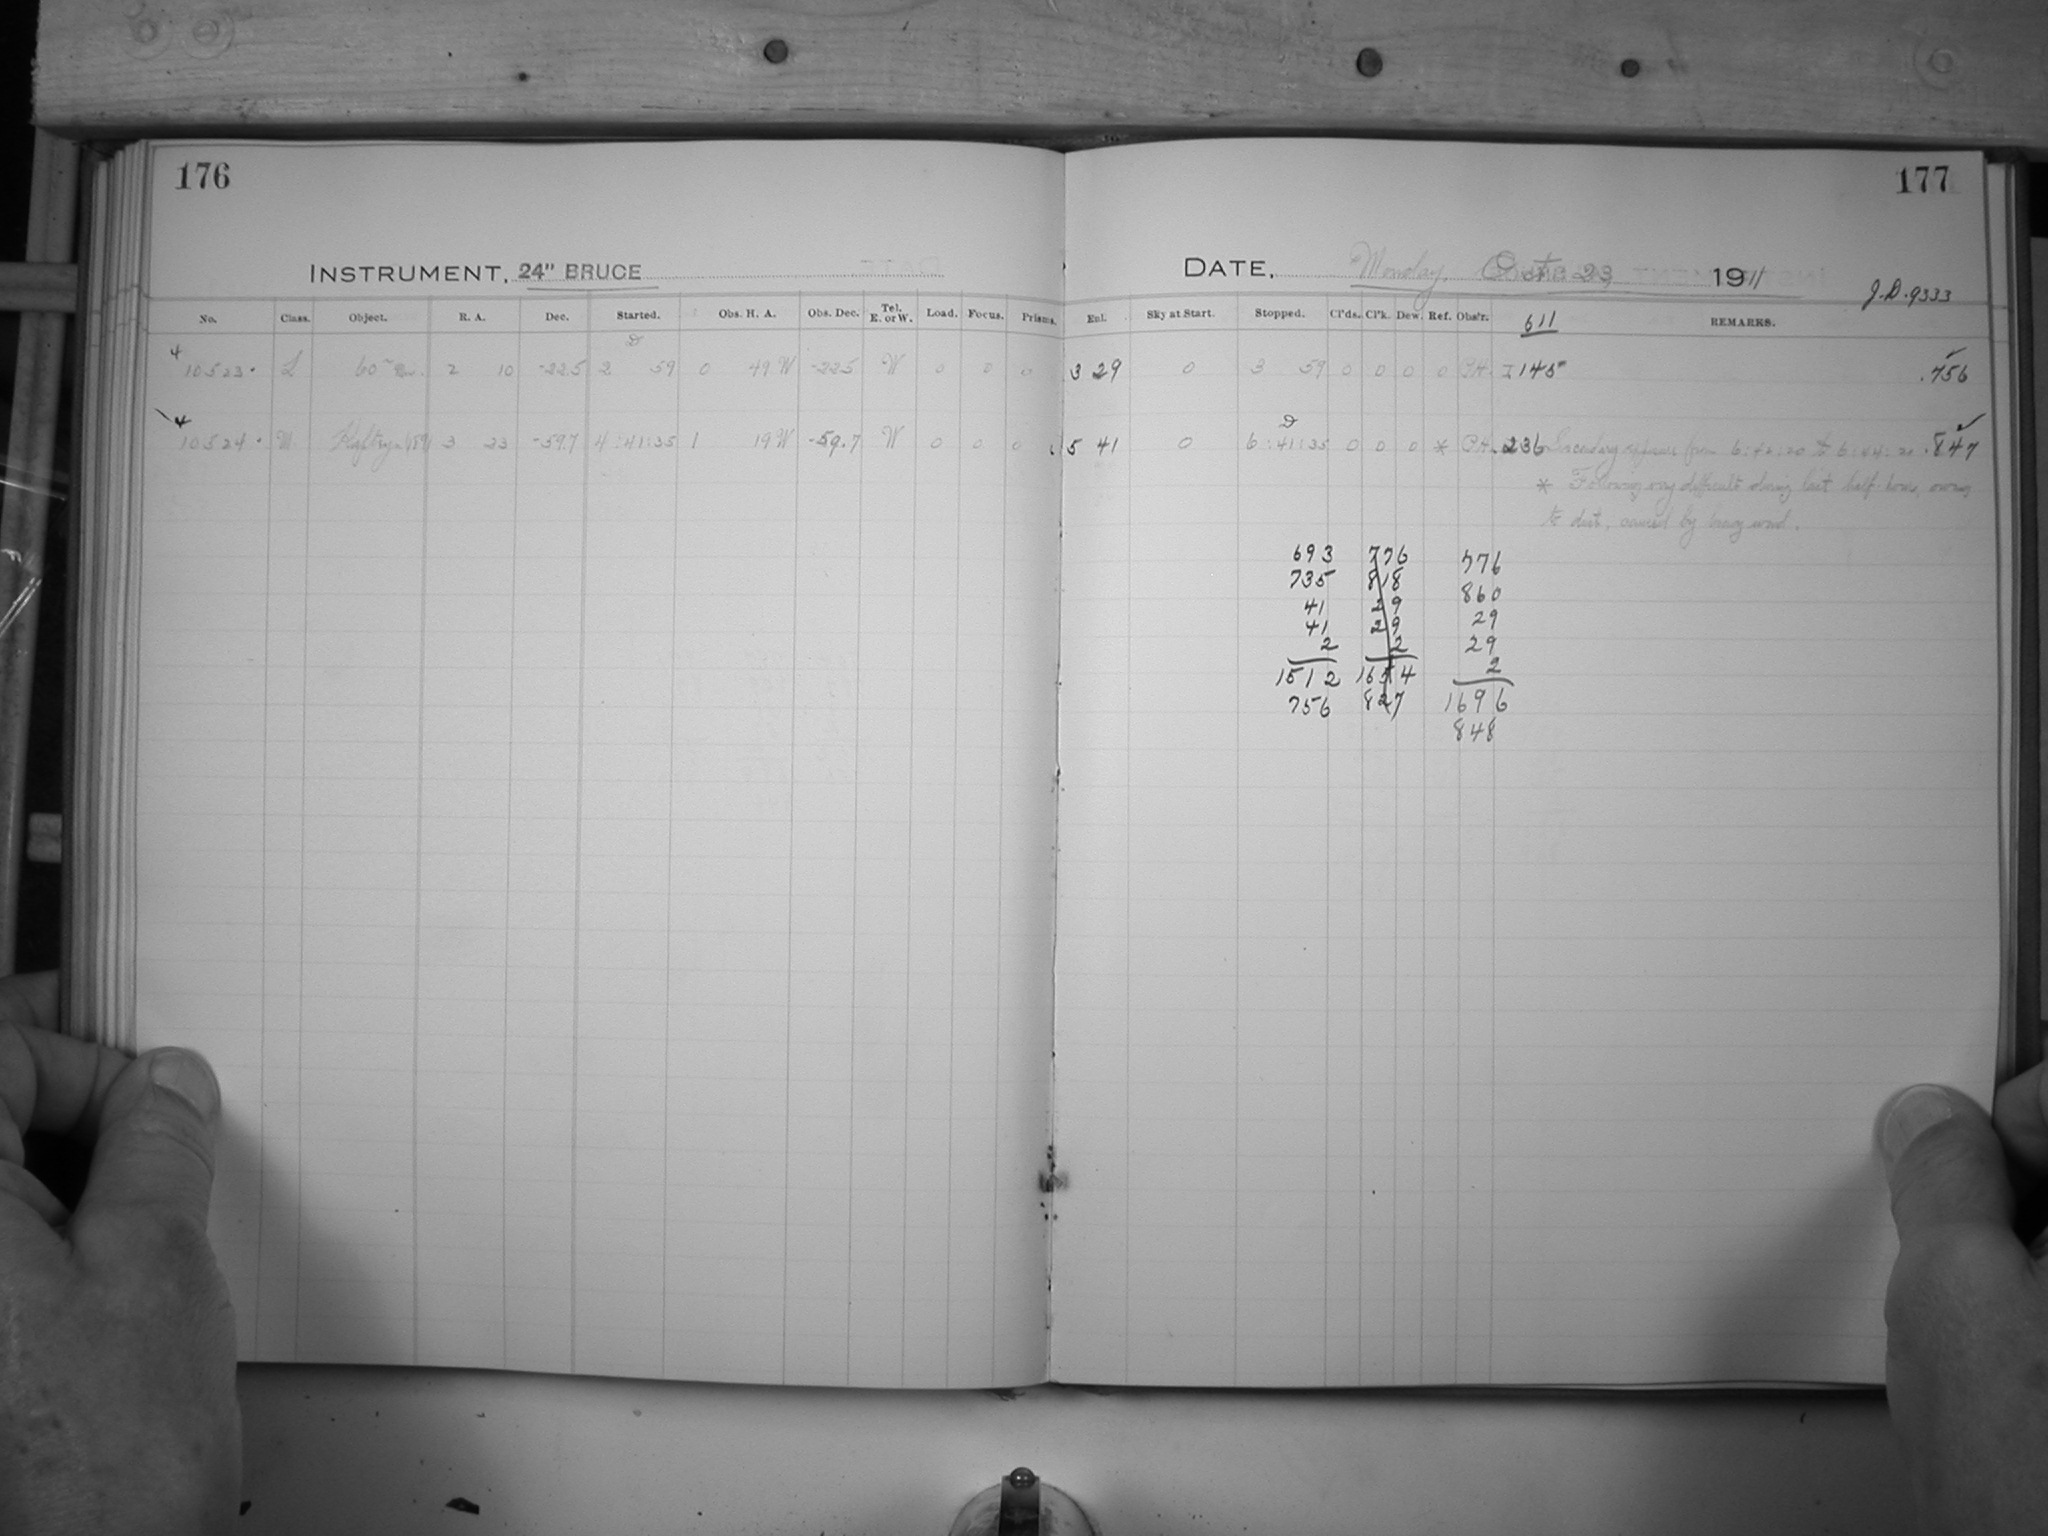 176
INSTRUMENT, 24" BRUCE
No. Class. Object. R. A. Dec. Started. Obs. H. A. Obs. Dec. Tel. E. or W. Load. Focus. Prisms.
4 10523 L 60m 2 10 -22.5 2 59 0 49 W -22.5 W 0 0 0
4 10524 3 23 -59.7 4:41:35 1 19 W -59.7 W 0 0 0
177
DATE, Monday, Oct. 23, 1911
J.D. 9333
Enl. Sky at Start. Stopped. Cl'ds. Cl'k. Dew. Ref. Obs'r. 611 REMARKS.
3 29 0 3 59 0 0 0 0 I 145 .756
5 41 0 6:41:35 0 0 0 * 236 Secondary exposure from 6:42:20 to 6:44:20 .847
* Following very difficult during last half-hour, owing
to dust, caused by heavy wind.
693 776 776
735 818 860
41 29 29
41 29 29
2 2 2
1512 1654 1696
756 827 848